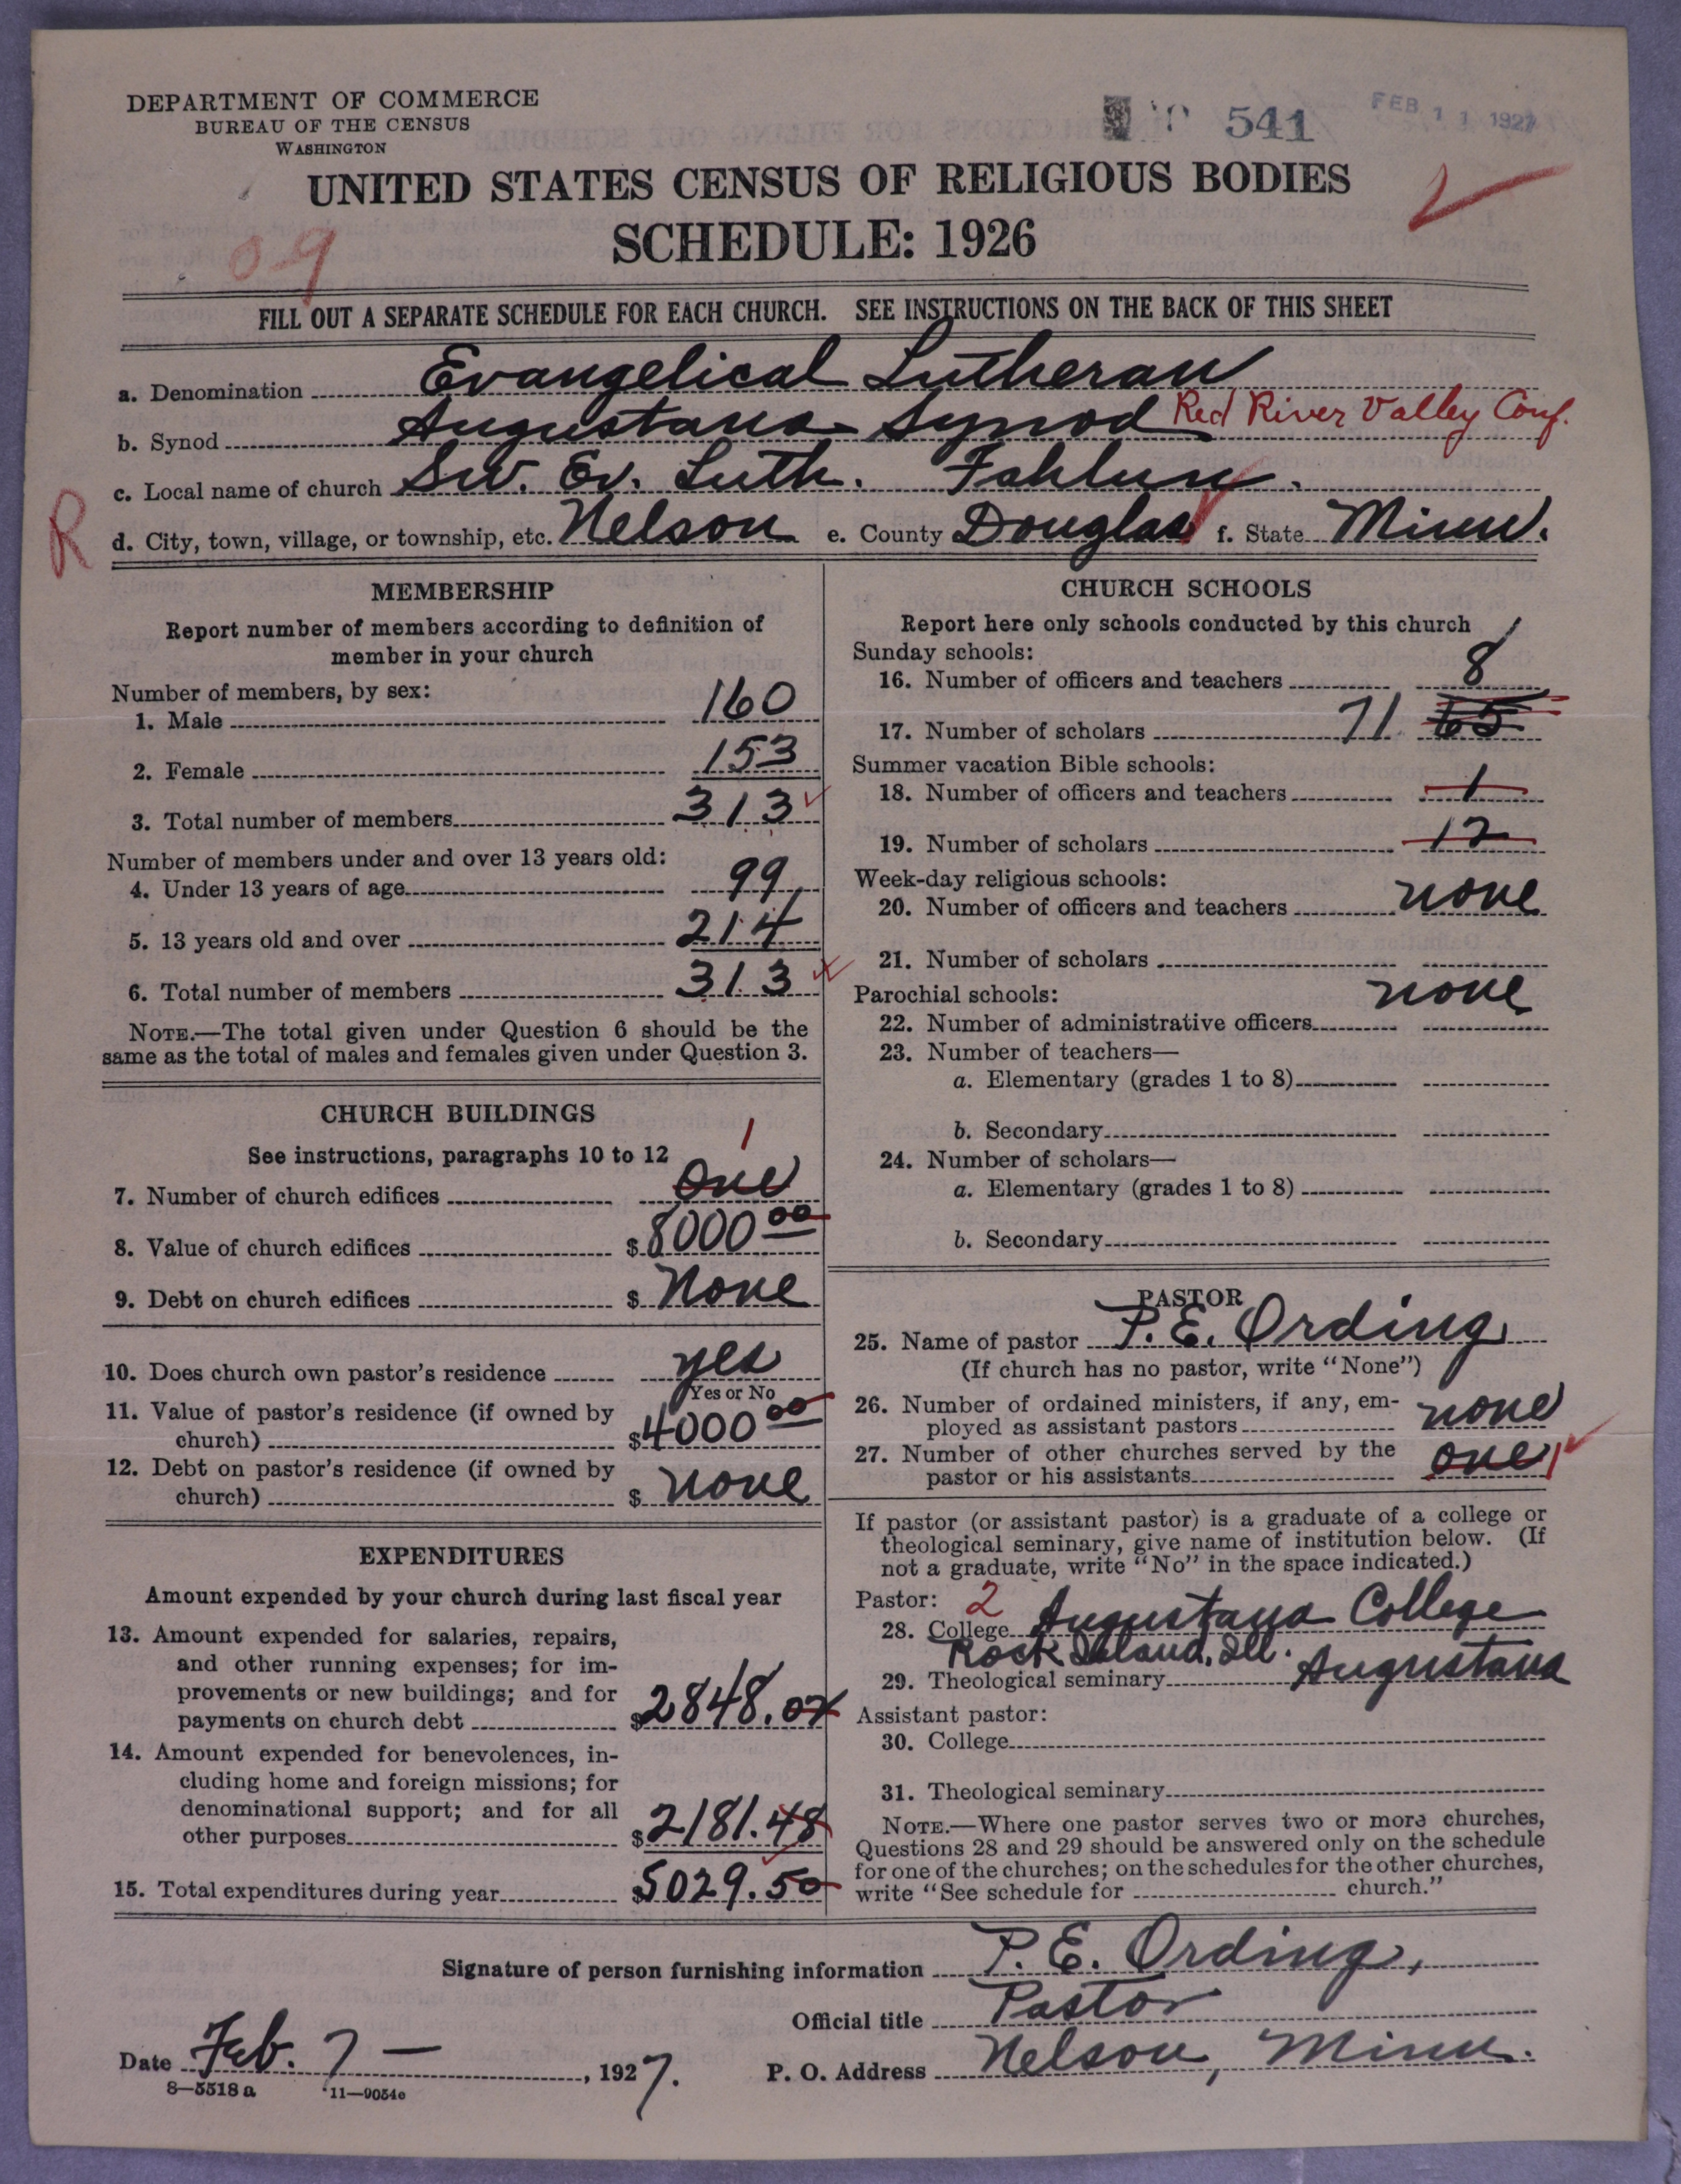 DEPARTMENT OF COMMERCE
BUREAU OF THE CENSUS
WASHINGTON
541
FEB 11 1927
UNITED STATES CENSUS OF RELIGIOUS BODIES
SCHEDULE: 1926
09
FILL OUT A SEPARATE SCHEDULE FOR EACH CHURCH. SEE INSTRUCTIONS ON THE BACK OF THIS SHEET
a. Denomination Evangelical Lutheran
b. Synod Augustana Synod Red River Valley Conf.
c. Local name of church Sw. Ev. Luth. Fahlun.
R
d. City, town, village, or township, etc. Nelson e. County Douglas f. State Minn.
MEMBERSHIP
Report number of members according to definition of
member in your church
Number of members, by sex:
1. Male 160
2. Female 153
3. Total number of members 313
Number of members under and over 13 years old:
4. Under 13 years of age 99
5. 13 years old and over 214
6. Total number of members 313
NOTE.—The total given under Question 6 should be the
same as the total of males and females given under Question 3.
CHURCH BUILDINGS
See instructions, paragraphs 10 to 12
1
7. Number of church edifices One
8. Value of church edifices $ 8000 00
9. Debt on church edifices $ None
10. Does church own pastor's residence yes
Yes or No
11. Value of pastor's residence (if owned by
church) $ 4000 00
12. Debt on pastor's residence (if owned by
church) $ none
EXPENDITURES
Amount expended by your church during last fiscal year
13. Amount expended for salaries, repairs,
and other running expenses; for im-
provements or new buildings; and for
payments on church debt $ 2848.02
14. Amount expended for benevolences, in-
cluding home and foreign missions; for
denominational support; and for all
other purposes $ 2181.48
15. Total expenditures during year $ 5029.50
CHURCH SCHOOLS
Report here only schools conducted by this church
Sunday schools:
16. Number of officers and teachers 8
17. Number of scholars 71 65
Summer vacation Bible schools:
18. Number of officers and teachers 1
19. Number of scholars 12
Week-day religious schools:
20. Number of officers and teachers none
21. Number of scholars
Parochial schools: none
22. Number of administrative officers
23. Number of teachers—
a. Elementary (grades 1 to 8)
b. Secondary
24. Number of scholars—
a. Elementary (grades 1 to 8)
b. Secondary
PASTOR
25. Name of pastor P. E. Ording
(If church has no pastor, write "None")
26. Number of ordained ministers, if any, em-
ployed as assistant pastors none
27. Number of other churches served by the
pastor or his assistants one 1
If pastor (or assistant pastor) is a graduate of a college or
theological seminary, give name of institution below. (If
not a graduate, write "No" in the space indicated.)
Pastor: 2
28. College Augustana College
Rock Island, Ill.
29. Theological seminary Augustana
Assistant pastor:
30. College
31. Theological seminary
NOTE.—Where one pastor serves two or more churches,
Questions 28 and 29 should be answered only on the schedule
for one of the churches; on the schedules for the other churches,
write "See schedule for church."
Signature of person furnishing information P. E. Ording,
Official title Pastor
Date Feb. 7 — , 1927. P. O. Address Nelson, Minn.
8—5518 a 11—9054c